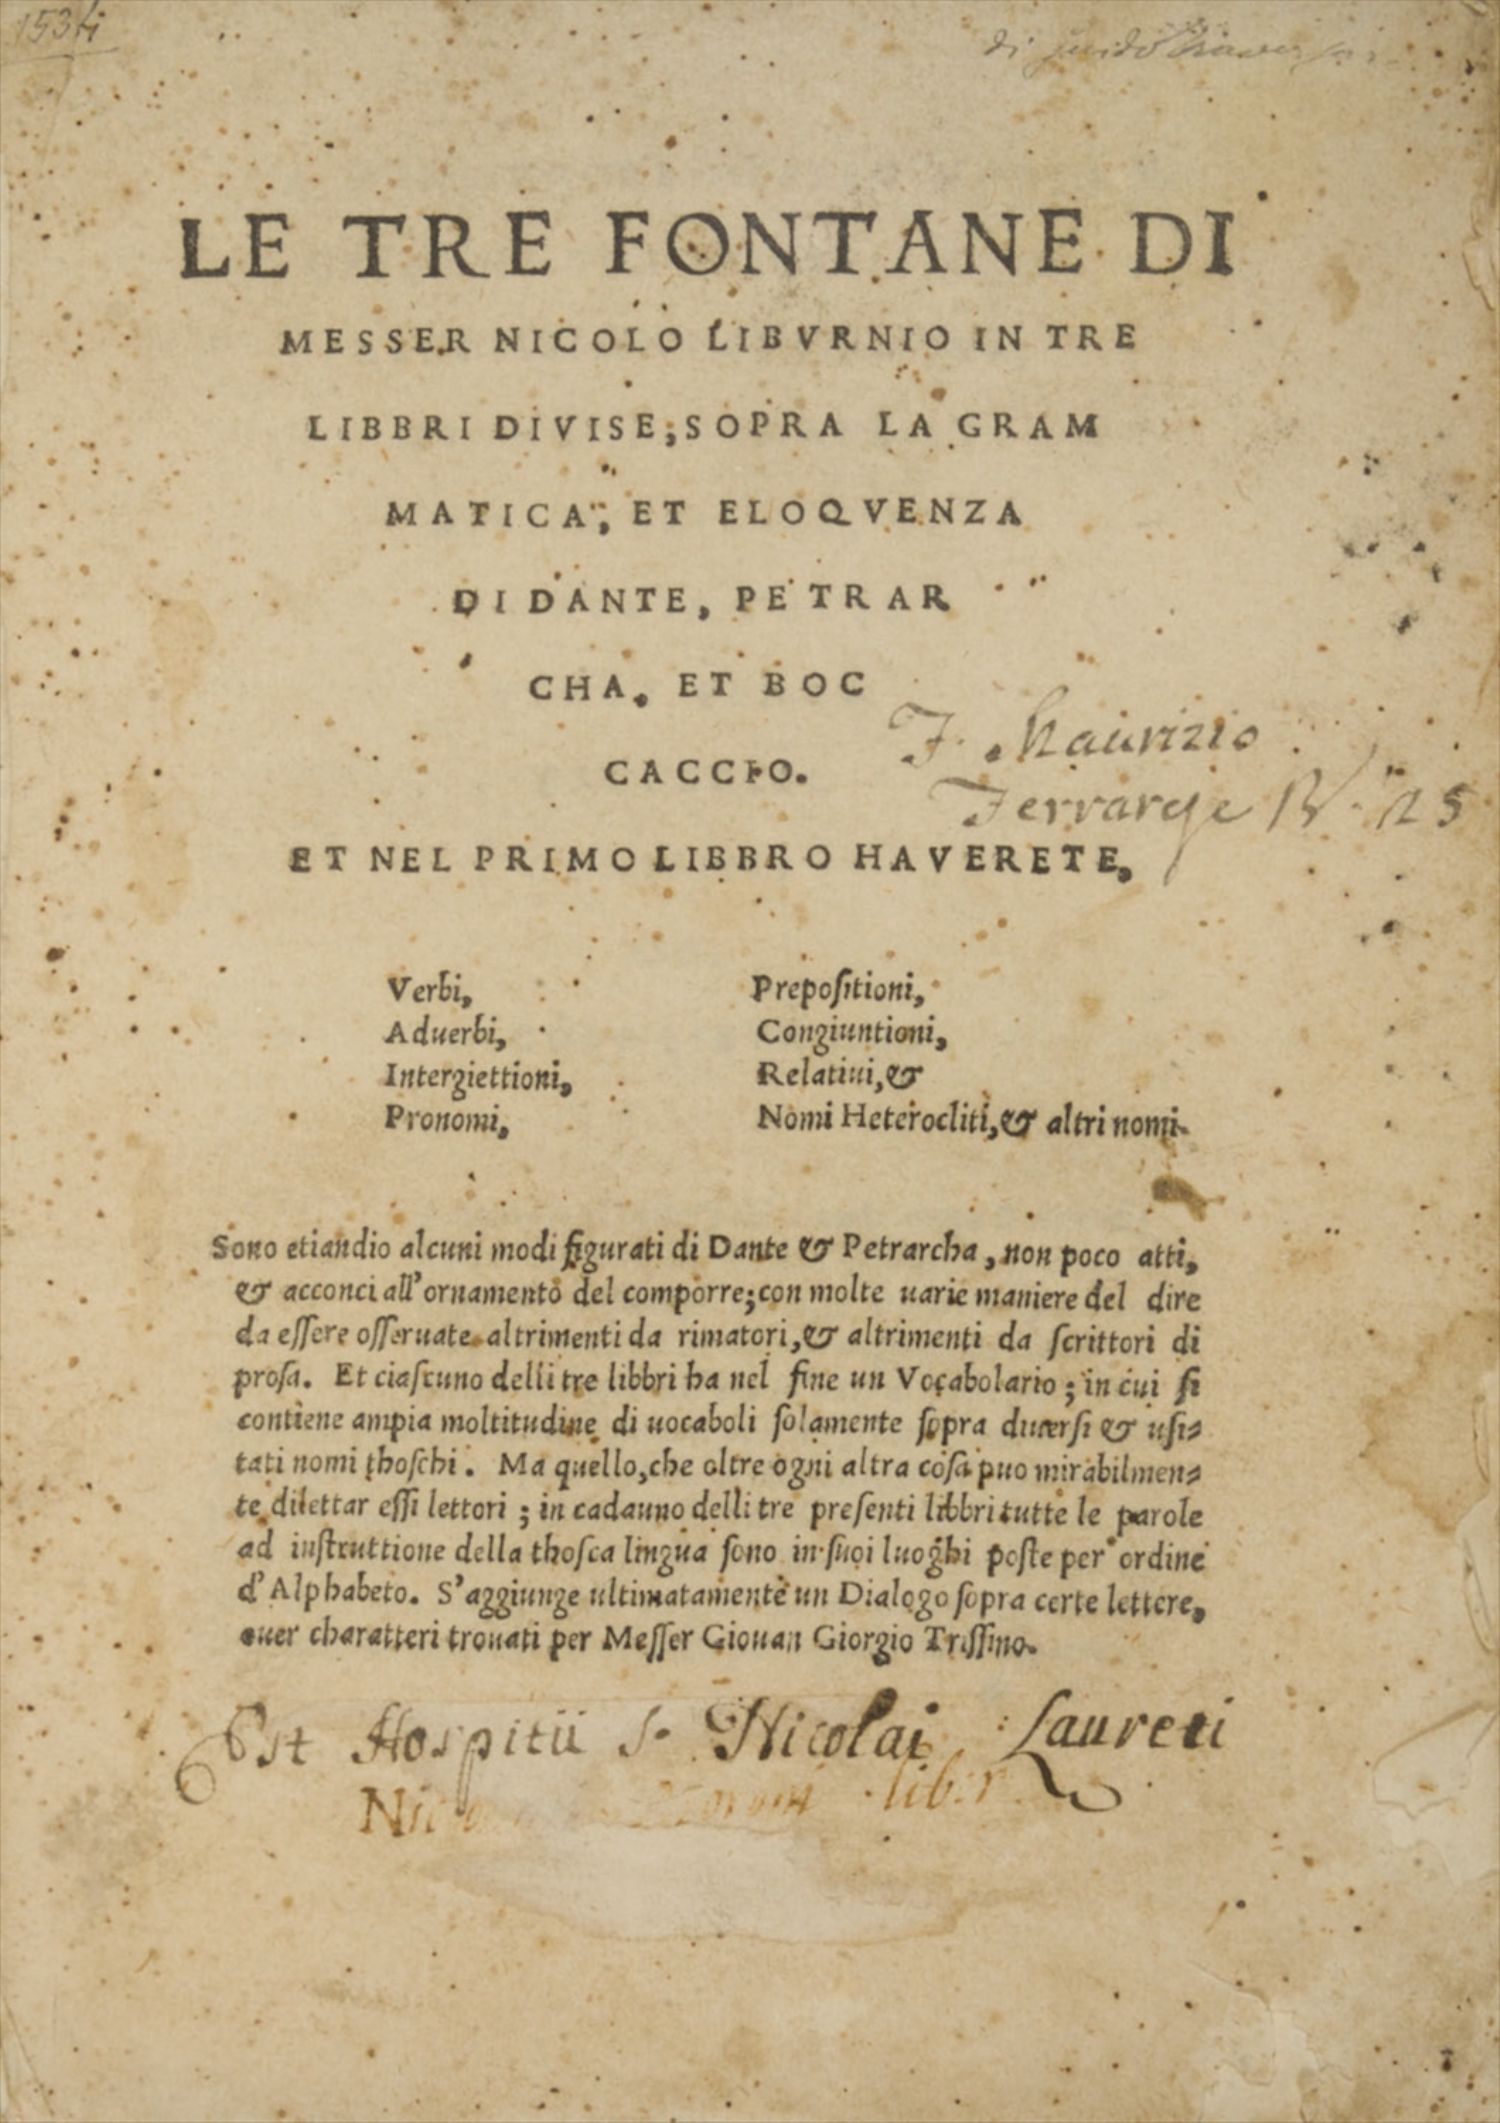 1534
di Guido
LE TRE FONTANE DI
MESSER NICOLO LIBVRNIO IN TRE
LIBBRI DIVISE, SOPRA LA GRAM
MATICA, ET ELOQVENZA
DI DANTE, PETRAR
CHA. ET BOC
CACCIO.
F. Maurizio
Ferrarese
ET NEL PRIMO LIBBRO HAVERETE,
Verbi,
Aduerbi,
Intergiettioni,
Pronomi,
Prepoſitioni,
Congiuntioni,
Relatiui, &
Nomi Heterocliti, & altri nomi.
Sono etiandio alcuni modi figurati di Dante & Petrarcha, non poco atti,
& acconci all' ornamento del comporre; con molte uarie maniere del dire
da eſſere oſſeruate altrimenti da rimatori, & altrimenti da ſcrittori di
proſa. Et ciaſcuno delli tre libbri ha nel fine un Vocabolario; in cui ſi
contiene ampia moltitudine di uocaboli ſolamente ſopra diuerſi & uſi-
tati nomi thoſchi. Ma quello, che oltre ogni altra coſa puo mirabilmen-
te dilettar eſſi lettori; in cadauno delli tre preſenti libbri tutte le parole
ad inſtruttione della thoſca lingua ſono in ſuoi luoghi poſte per ordine
d'Alphabeto. S'aggiunge ultimatamente un Dialogo ſopra certe lettere,
ouer charatteri trouati per Meſſer Giouan Giorgio Triſſino.
Est Hospitii S. Nicolai Laureti
liber